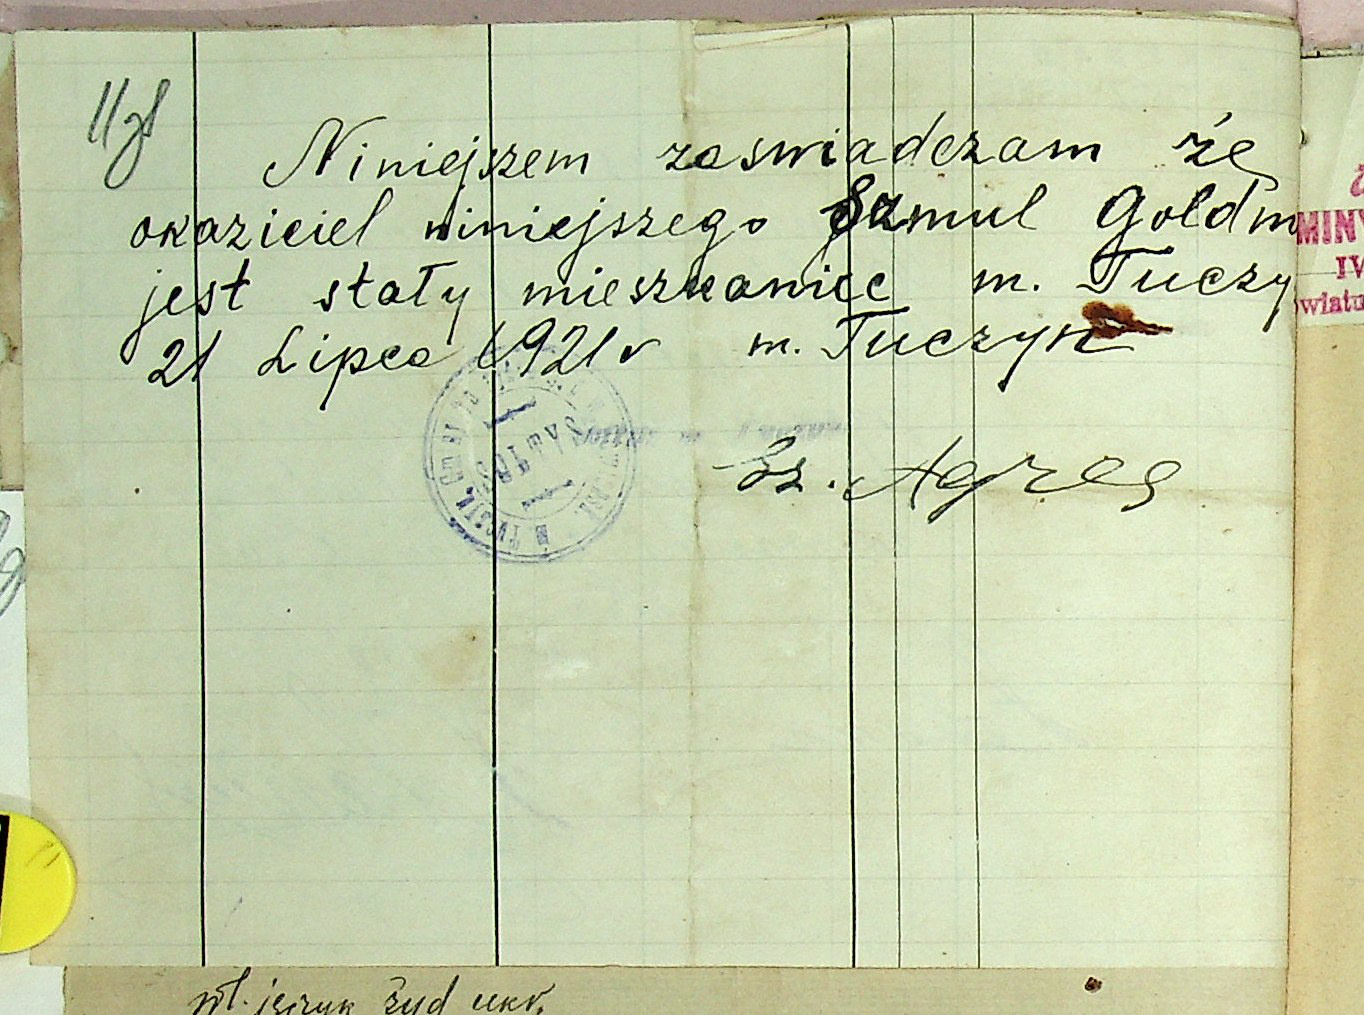 11 zł
Niniejszem zaswiadczam że
okaziciel niniejszego Szmul Goldm
jest stały mieszkaniec m. Tuczy
21 Lipca 1921 r m. Tuczyn
Sz.
MINY
IV
owiatu
wł. język żyd ukr.